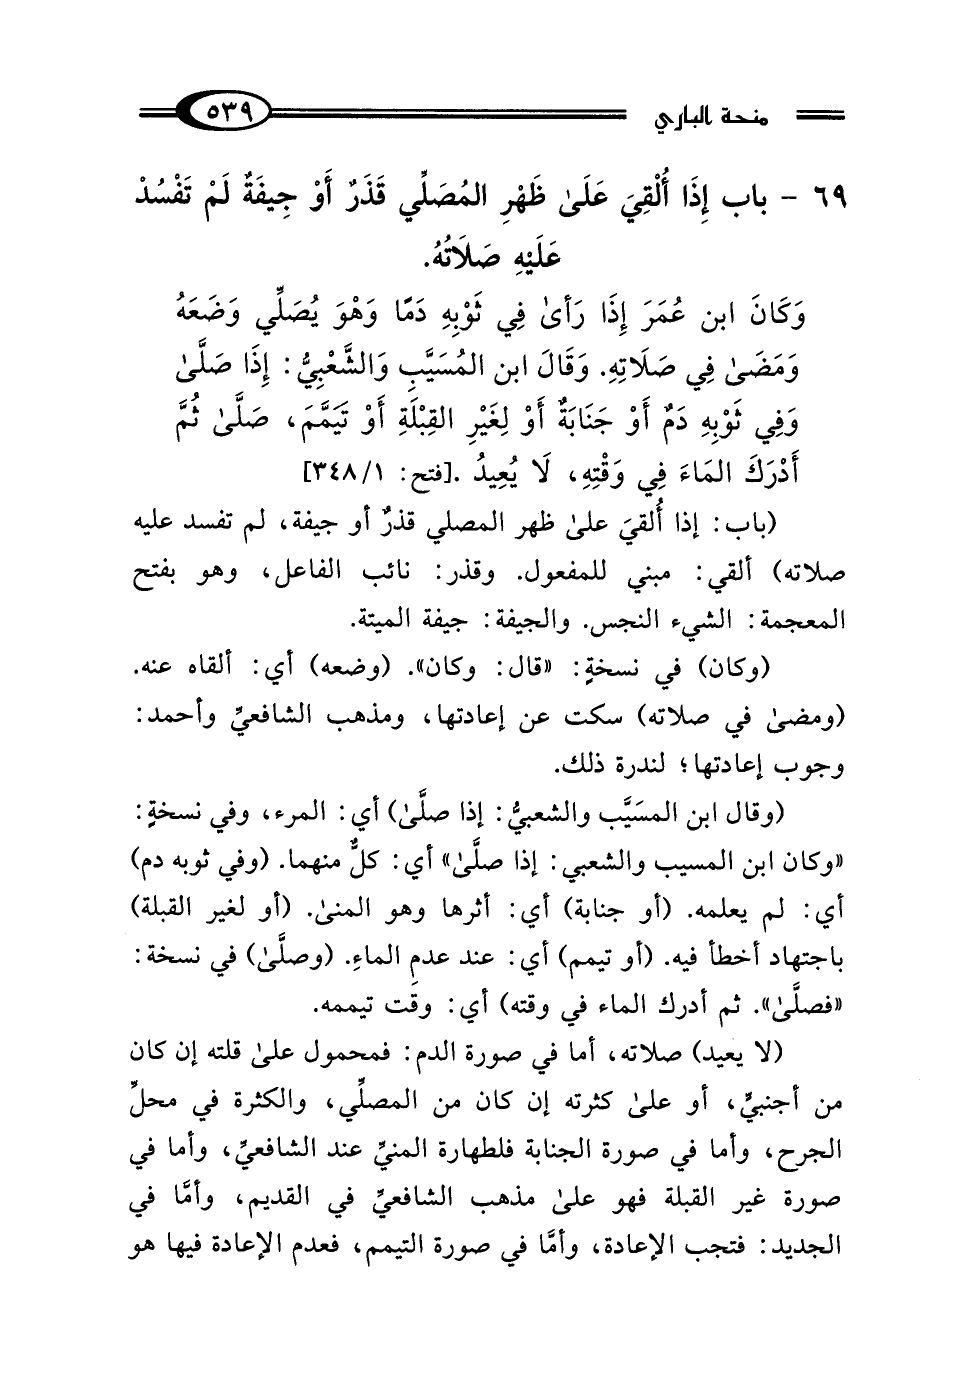 منحة الباري ٥٣٩
٦٩ - باب إِذَا أُلْقِيَ عَلَىٰ ظَهْرِ المُصَلِّي قَذَرٌ أَوْ جِيفَةٌ لَمْ تَفْسُدْ
عَلَيْهِ صَلَاتُهُ.
وَكَانَ ابن عُمَرَ إِذَا رَأىٰ فِي ثَوْبِهِ دَمًا وَهْوَ يُصَلِّي وَضَعَهُ
وَمَضَىٰ فِي صَلَاتِهِ. وَقَالَ ابن المُسَيَّبِ وَالشَّعْبِيُّ: إِذَا صَلَّىٰ
وَفِي ثَوْبِهِ دَمٌ أَوْ جَنَابَةٌ أَوْ لِغَيْرِ القِبْلَةِ أَوْ تَيَمَّمَ، صَلَّىٰ ثُمَّ
أَدْرَكَ المَاءَ فِي وَقْتِهِ، لَا يُعِيدُ .[فتح: ٣٤٨/١]
(باب: إذا أُلقيَ علىٰ ظهر المصلي قذرٌ أو جيفة، لم تفسد عليه
صلاته) ألقي: مبني للمفعول. وقذر: نائب الفاعل، وهو بفتح
المعجمة: الشيء النجس. والجيفة: جيفة الميتة.
(وكان) في نسخةٍ: «قال: وكان». (وضعه) أي: ألقاه عنه.
(ومضىٰ في صلاته) سكت عن إعادتها، ومذهب الشافعيِّ وأحمد:
وجوب إعادتها؛ لندرة ذلك.
(وقال ابن المسَيَّب والشعبيُّ: إذا صلَّىٰ) أي: المرء، وفي نسخةٍ:
«وكان ابن المسيب والشعبي: إذا صلَّىٰ» أي: كلٌّ منهما. (وفي ثوبه دم)
أي: لم يعلمه. (أو جنابة) أي: أثرها وهو المنىٰ. (أو لغير القبلة)
باجتهاد أخطأ فيه. (أو تيمم) أي: عند عدمِ الماءِ. (وصلَّىٰ) في نسخة:
«فصلَّىٰ». ثم أدرك الماء في وقته) أي: وقت تيممه.
(لا يعيد) صلاته، أما في صورة الدم: فمحمول علىٰ قلته إن كان
من أجنبيٍّ، أو علىٰ كثرته إن كان من المصلِّي، والكثرة في محلِّ
الجرح، وأما في صورة الجنابة فلطهارة المنيِّ عند الشافعيِّ، وأما في
صورة غير القبلة فهو علىٰ مذهب الشافعيِّ في القديم، وأمَّا في
الجديد: فتجب الإعادة، وأمَّا في صورة التيمم، فعدم الإعادة فيها هو